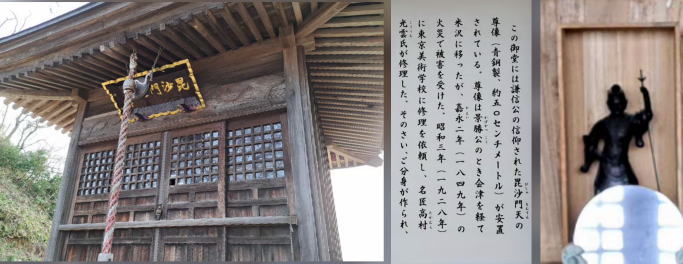 毘沙門
この御堂には謙信公の信仰された毘沙門天の
尊像（青銅製、約五〇センチメートル）が安置
されている。尊像は景勝公のとき会津を経て
米沢に移ったが、嘉永二年（一八四九年）の
火災で被害を受けた。昭和三年（一九二八年）
に東京美術学校に修理を依頼し、名匠高村
光雲氏が修理した。そのさい、ご分身が作られ、